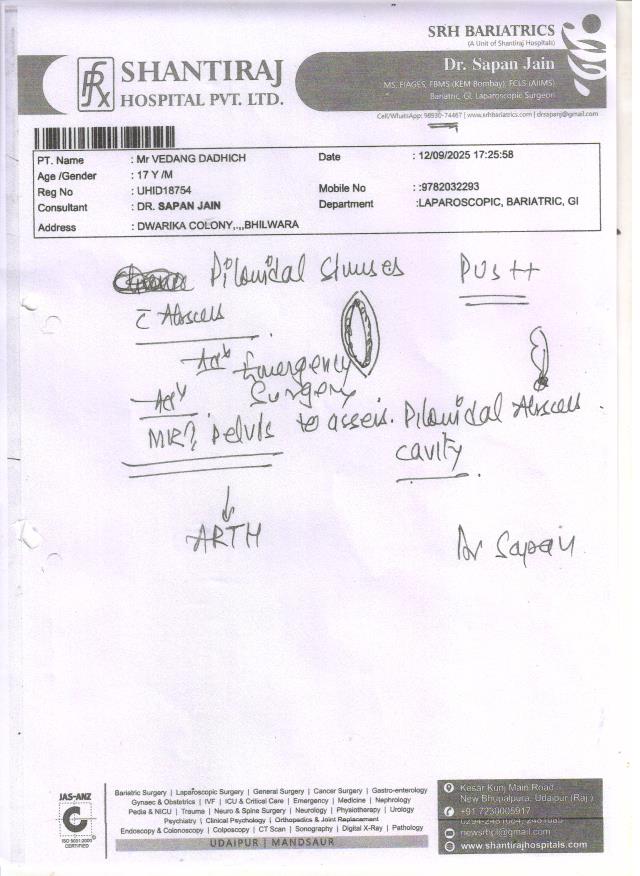 SRH BARIATRICS
(A Unit of Shantiraj Hospitals)
Dr. Sapan Jain
MS, FIAGES, FBMS (KEM Bombay), FCLS (AIIMS)
Bariatric, GI, Laparoscopic Surgeon
Cell/WhatsApp: 98930-74467 | www.srhbariatrics.com | drrsapanj@gmail.com
SHANTIRAJ
HOSPITAL PVT. LTD.
PT. Name : Mr VEDANG DADHICH Date : 12/09/2025 17:25:58
Age /Gender : 17 Y /M
Reg No : UHID18754 Mobile No : :9782032293
Consultant : DR. SAPAN JAIN Department :LAPAROSCOPIC, BARIATRIC, GI
Address : DWARIKA COLONY,.,,BHILWARA
Pilonidal Sinuses PUS++
c̄ Abscess
Adv Emergency
Surgery
Adv
MRI Pelvis to assess. Pilonidal Abscess
cavity
↓
ARTH
Dr Sapan
JAS-ANZ
ISO 9001:2000
CERTIFIED
Bariatric Surgery | Laparoscopic Surgery | General Surgery | Cancer Surgery | Gastro-enterology
Gynaec & Obstetrics | IVF | ICU & Critical Care | Emergency | Medicine | Nephrology
Pedia & NICU | Trauma | Neuro & Spine Surgery | Neurology | Physiotherapy | Urology
Psychiatry | Clinical Psychology | Orthopedics & Joint Replacement
Endoscopy & Colonoscopy | Colposcopy | CT Scan | Sonography | Digital X-Ray | Pathology
UDAIPUR | MANDSAUR
Kesar Kunj Main Road
New Bhupalpura, Udaipur (Raj.)
+91 7230005917
newsrhpl@gmail.com
www.shantirajhospitals.com